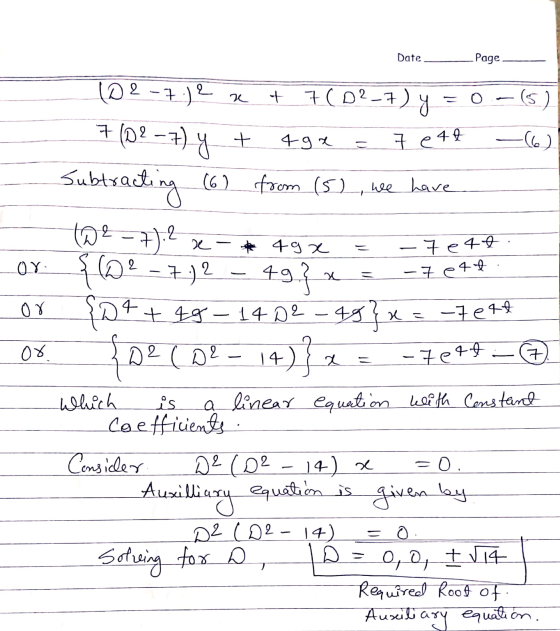 Date Page
(D² - 7)² x + 7(D² - 7) y = 0 — (5)
7(D² - 7) y + 49x = 7 e^4t — (6)
Subtracting (6) from (5), we have
(D² - 7)² x - 49x = -7e^4t.
or. {(D² - 7)² - 49} x = -7e^4t.
or {D⁴ + 49 - 14D² - 49} x = -7e^4t
or. {D² (D² - 14)} x = -7e^4t — (7)
Which is a linear equation with Constant
Coefficients.
Consider D² (D² - 14) x = 0.
Auxilliary equation is given by
D² (D² - 14) = 0.
Solving for D, D = 0, 0, ± √14
Required Root of.
Auxiliary equation.